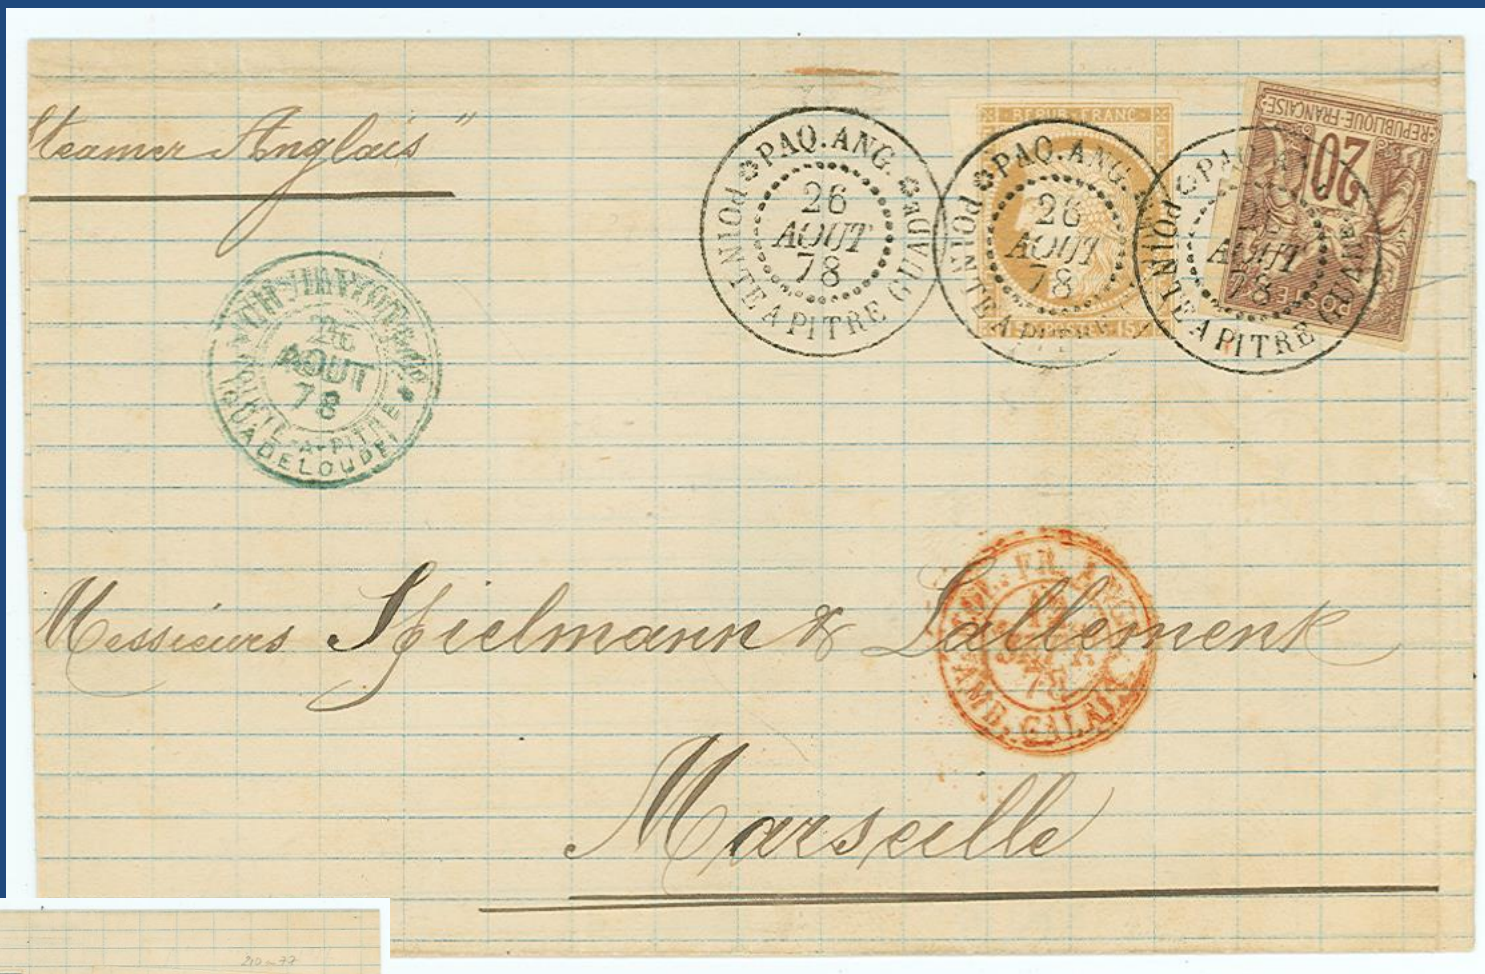 Steamer Anglais"
PAQ. ANG.
26
AOUT
78
POINTE A PITRE GUADE
REPUB. FRANC.
PAQ. ANG.
26
AOUT
78
POINTE A PITRE
15
REPUBLIQUE FRANÇAISE
20
POSTE
PAQ. ANG.
AOUT
78
POINTE A PITRE GUADE
26
AOUT
78
POINTE-A-PITRE
GUADELOUPE
Messieurs Spielmann & Lallement
COL. FR. ANGL.
SEPT.
78
AMB. CALAIS
Marseille